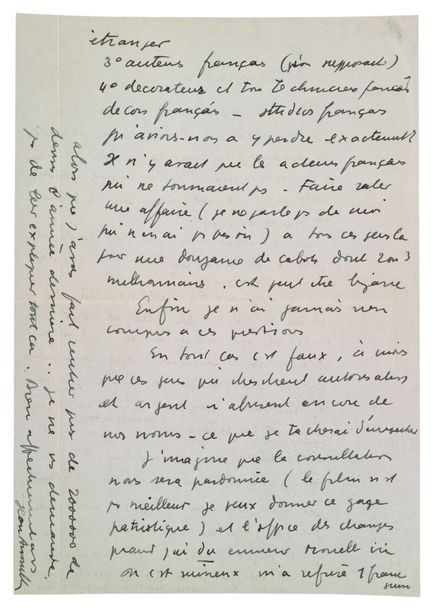 étranger
3° auteurs français (j'en
4° decorateurs et tous techniciens français
decors français - studios français
qu'avions-nous a y perdre exactement?
Il n'y avait que les acteurs français
qui ne tournaient ps - Faire rater
une affaire (je ne parle ps de moi
qui n'en ai ps besoin) a tous ces gens la
pour une douzaine de cabots dont 2 ou 3
millionnaires, c'est peut etre bizarre
Enfin je n'ai jamais rien
compris a ces questions
En tout cas c'est faux, à moins
que ces gens qui cherchent autorisations
et argent n'abusent encore de
nos noms - ce que je tacherai d'empecher
J'imagine que la consultation
nous sera pardonnée (le film n'est
ps meilleur je peux donner ce gage
patriotique) et l'office des changes
quand j'ai du emmener Monelle ici
on est mineux m'a refusé 1 franc
suisse
alors que j'avais fait rentrer pres de 2000000 de
devises l'année derniere - je ne vs demande
ps de leur expliquer tout ça. Bien affectueusement
Jean Anouilh